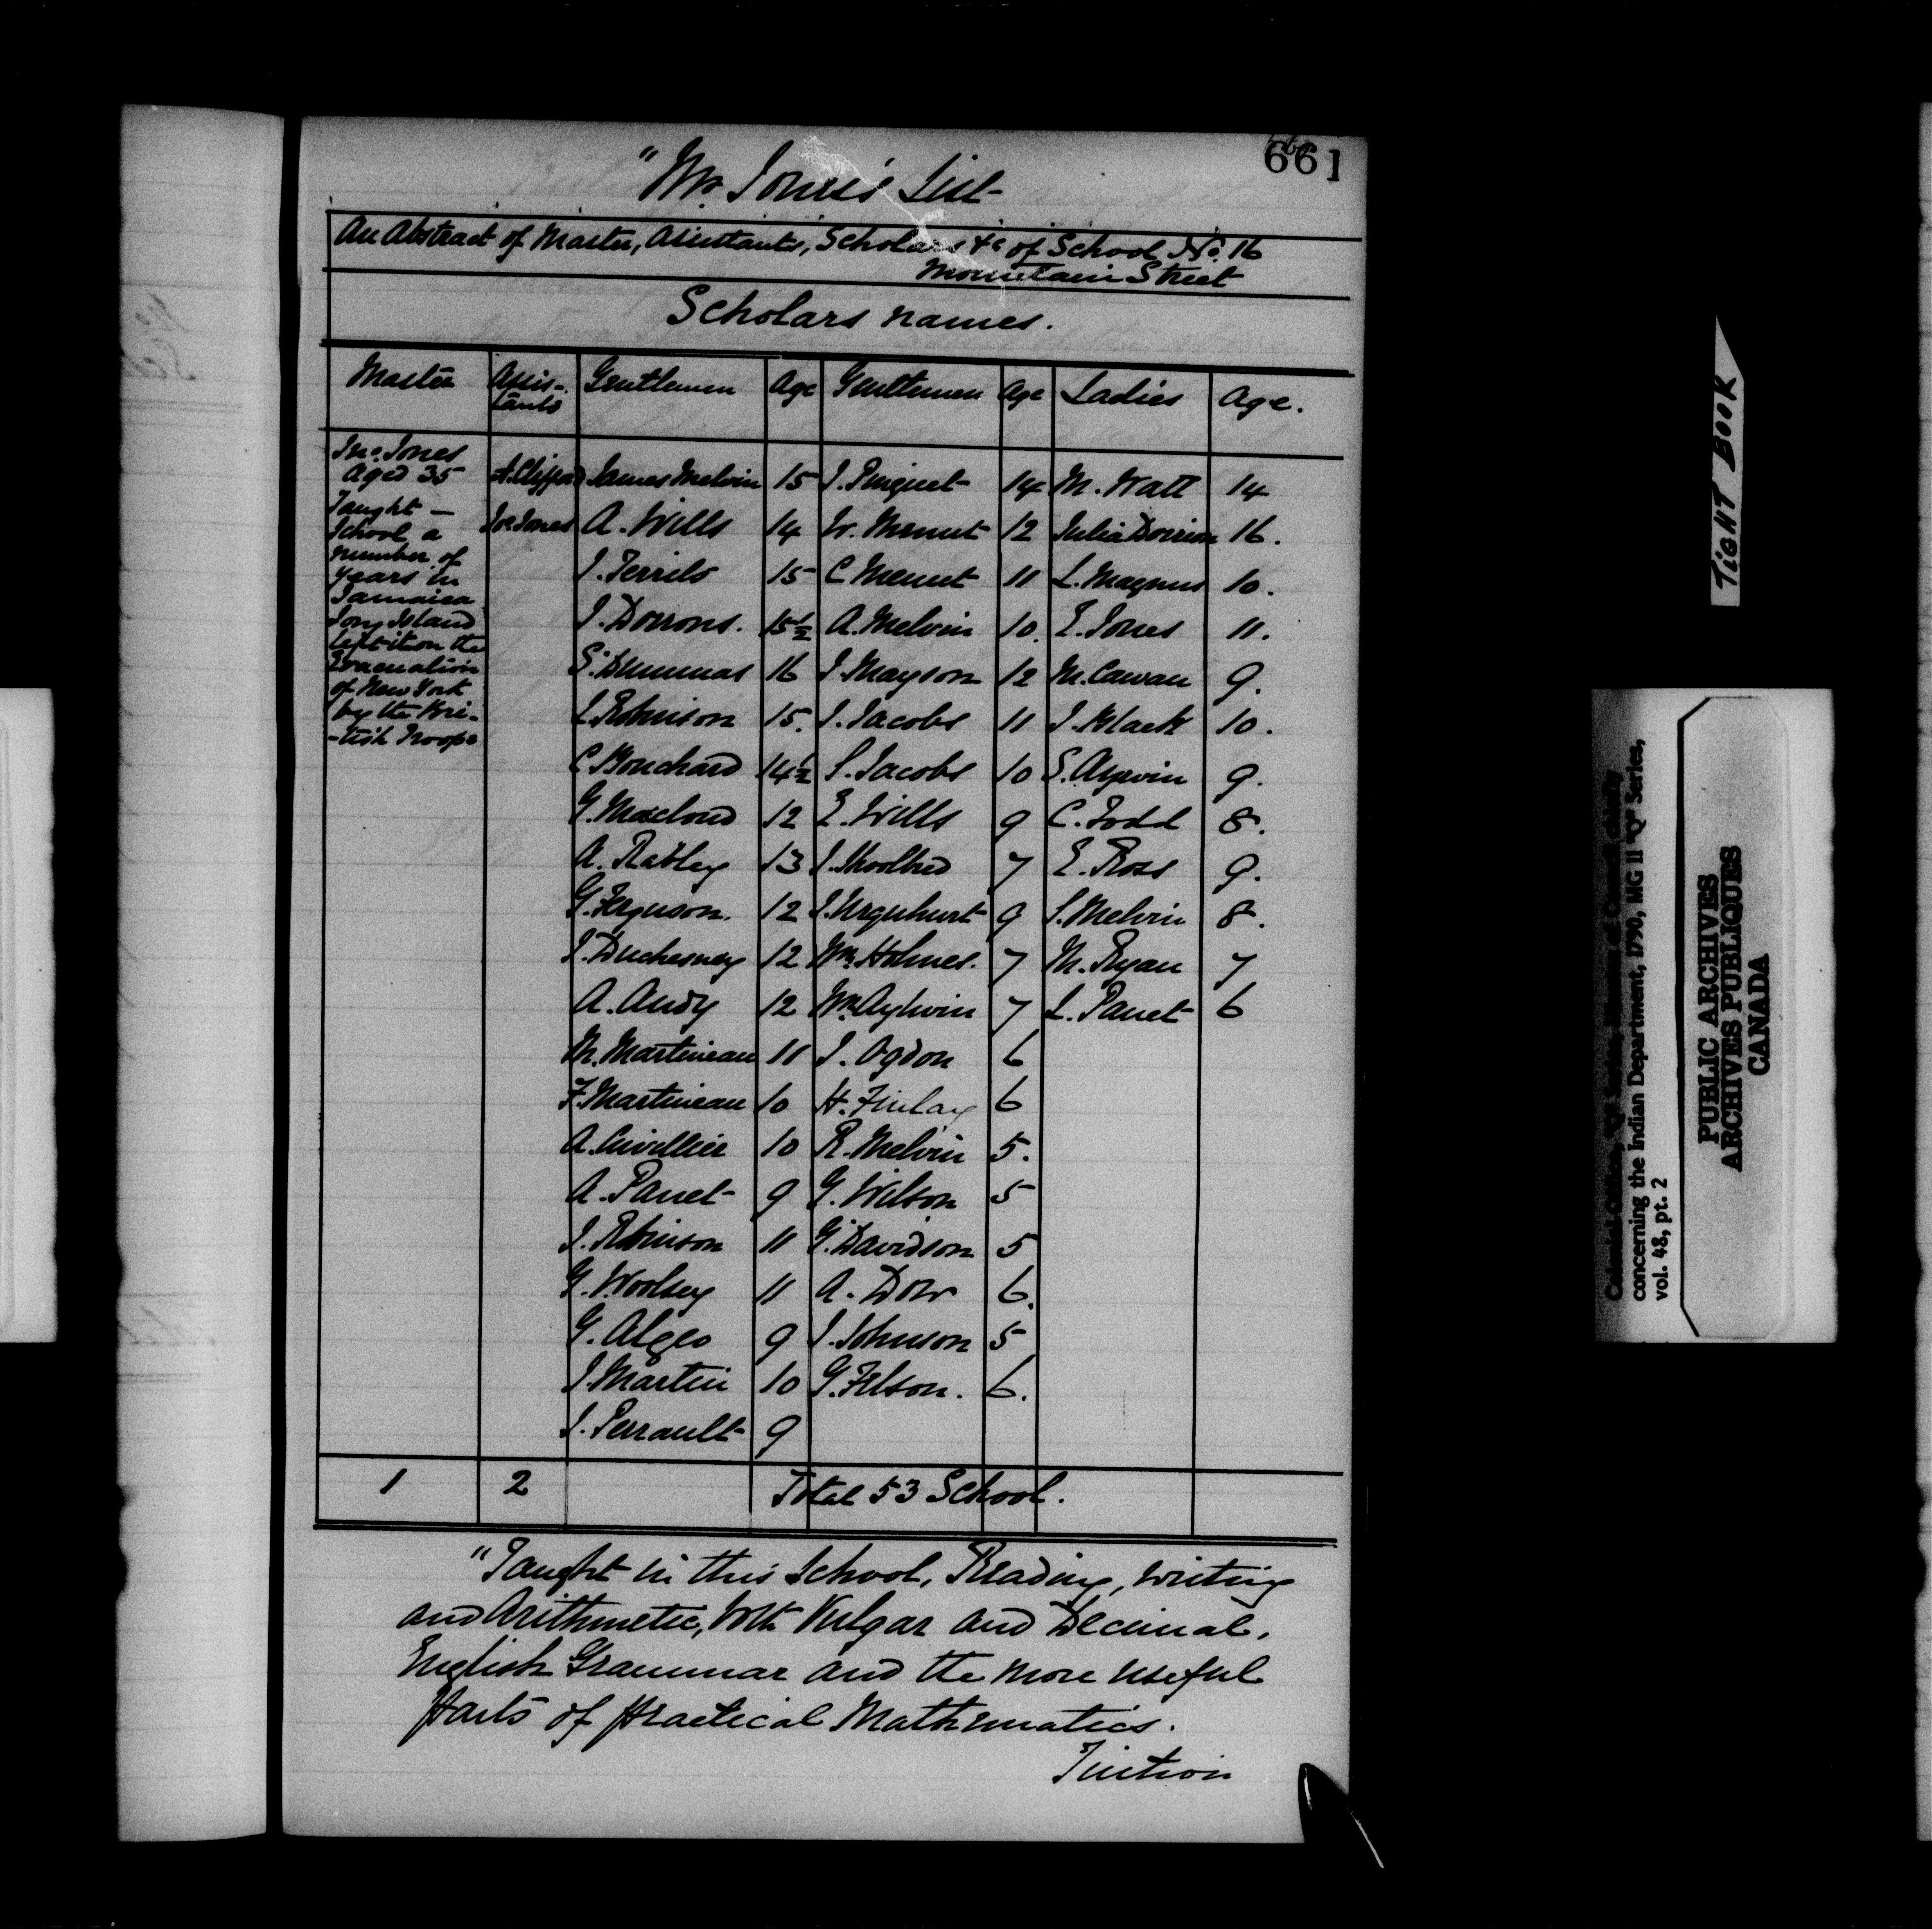 661
"Mr. Jones's List
An Abstract of Master, Assistants, Scholars &c of School No. 16
Mountain Street
Scholars names.
Master Assis- Gentlemen Age Gentlemen Age Ladies Age.
tants
Jno. Jones
aged 35 A. Clifford James Melvin 15 J. Pinguet 14 M. Watt 14
Taught —
School a Jos. Jones A. Wills 14 W. Menut 12 Julia Dorrion 16.
number of
years in J. Ferrils 15 C Menut 11 L. Magnus 10.
Jamaica
Long Island J. Dorrons. 15½ A. Melvin 10. E. Jones 11.
left it on the
Evacuation S. Dummas 16 J. Mayson 12 M. Cawan 9.
of New York
by the Bri- L Robinson 15. J. Jacobs 11 J. Black 10.
-tish Troops
C Bouchard 14½ S. Jacobs 10 S. Aylwin 9.
G. Macloud 12 E. Wills 9 C. Todd 8.
A. Rabley 13 J. Woolhed 7 E. Ross 9.
G. Ferguson. 12 J. Urquhurt 9 S. Melvin 8.
J. Duchesney 12 Wm. Holmes. 7 M. Ryan 7
A. Andy 12 Wm. Aylwin 7 L. Panet 6
M. Martineau 11 J. Ogdon 6
F. Martineau 10 H. Finlay 6
A. Cuvellier 10 R. Melvin 5.
A. Panet 9 G. Wilson 5
J. Robinson 11 G. Davidson 5
G. Woolsey 11 A. Dow 6.
G. Algeo 9 J. Johnson 5
J. Martin 10 G. Felson. 6.
J. Perrault 9
1 2 Total 53 School.
"Taught in this School, Reading, writing
and Arithmetic, both Vulgar and Decimal,
English Grammar and the more useful
parts of practical Mathematics.
Tuition
TIGHT BOOK
concerning the Indian Department, 1790, MG 11 "Q" Series,
vol. 48, pt. 2
PUBLIC ARCHIVES
ARCHIVES PUBLIQUES
CANADA